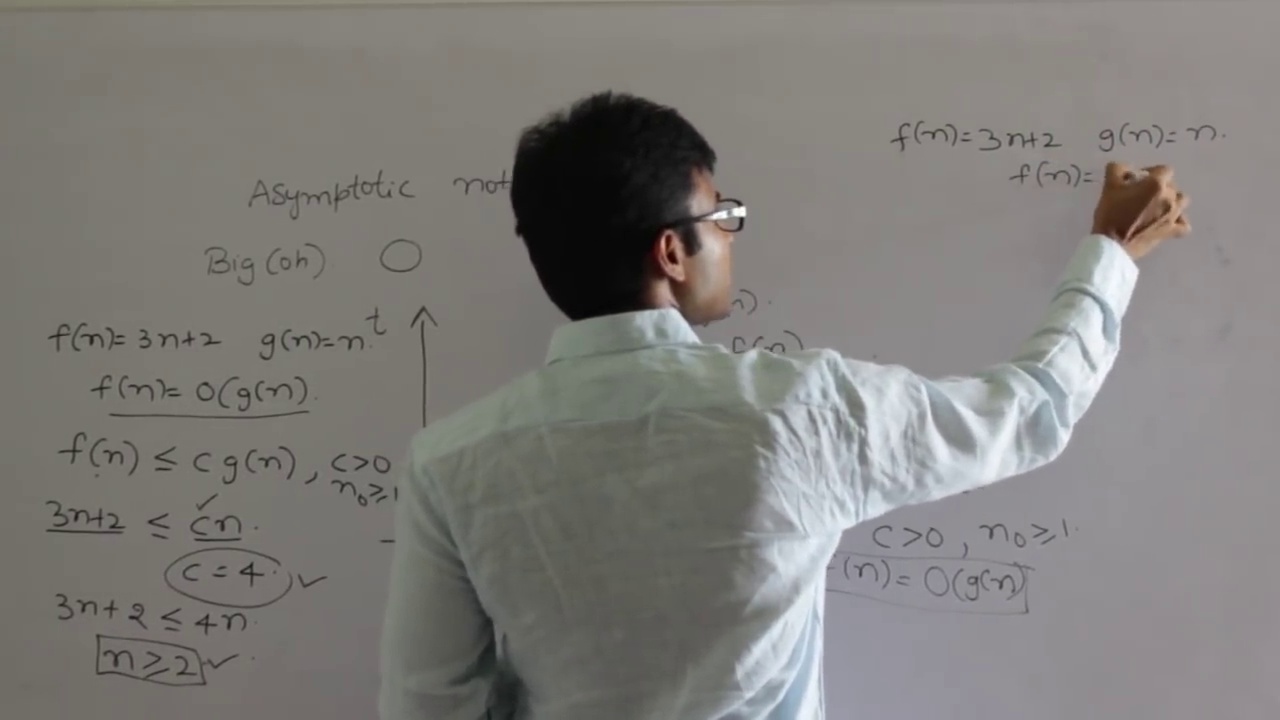 Asymptotic not
Big (oh) O
f(n)= 3n+2 g(n)=n. t
f(n)= O(g(n).
f(n) ≤ c g(n), c>0
n₀≥1
3n+2 ≤ cn.
c = 4.
3n+2 ≤ 4n.
n ≥ 2
n).
f(n)
c>0, n₀≥1.
f(n) = O(g(n)
f(n)= 3n+2 g(n)= n.
f(n)=